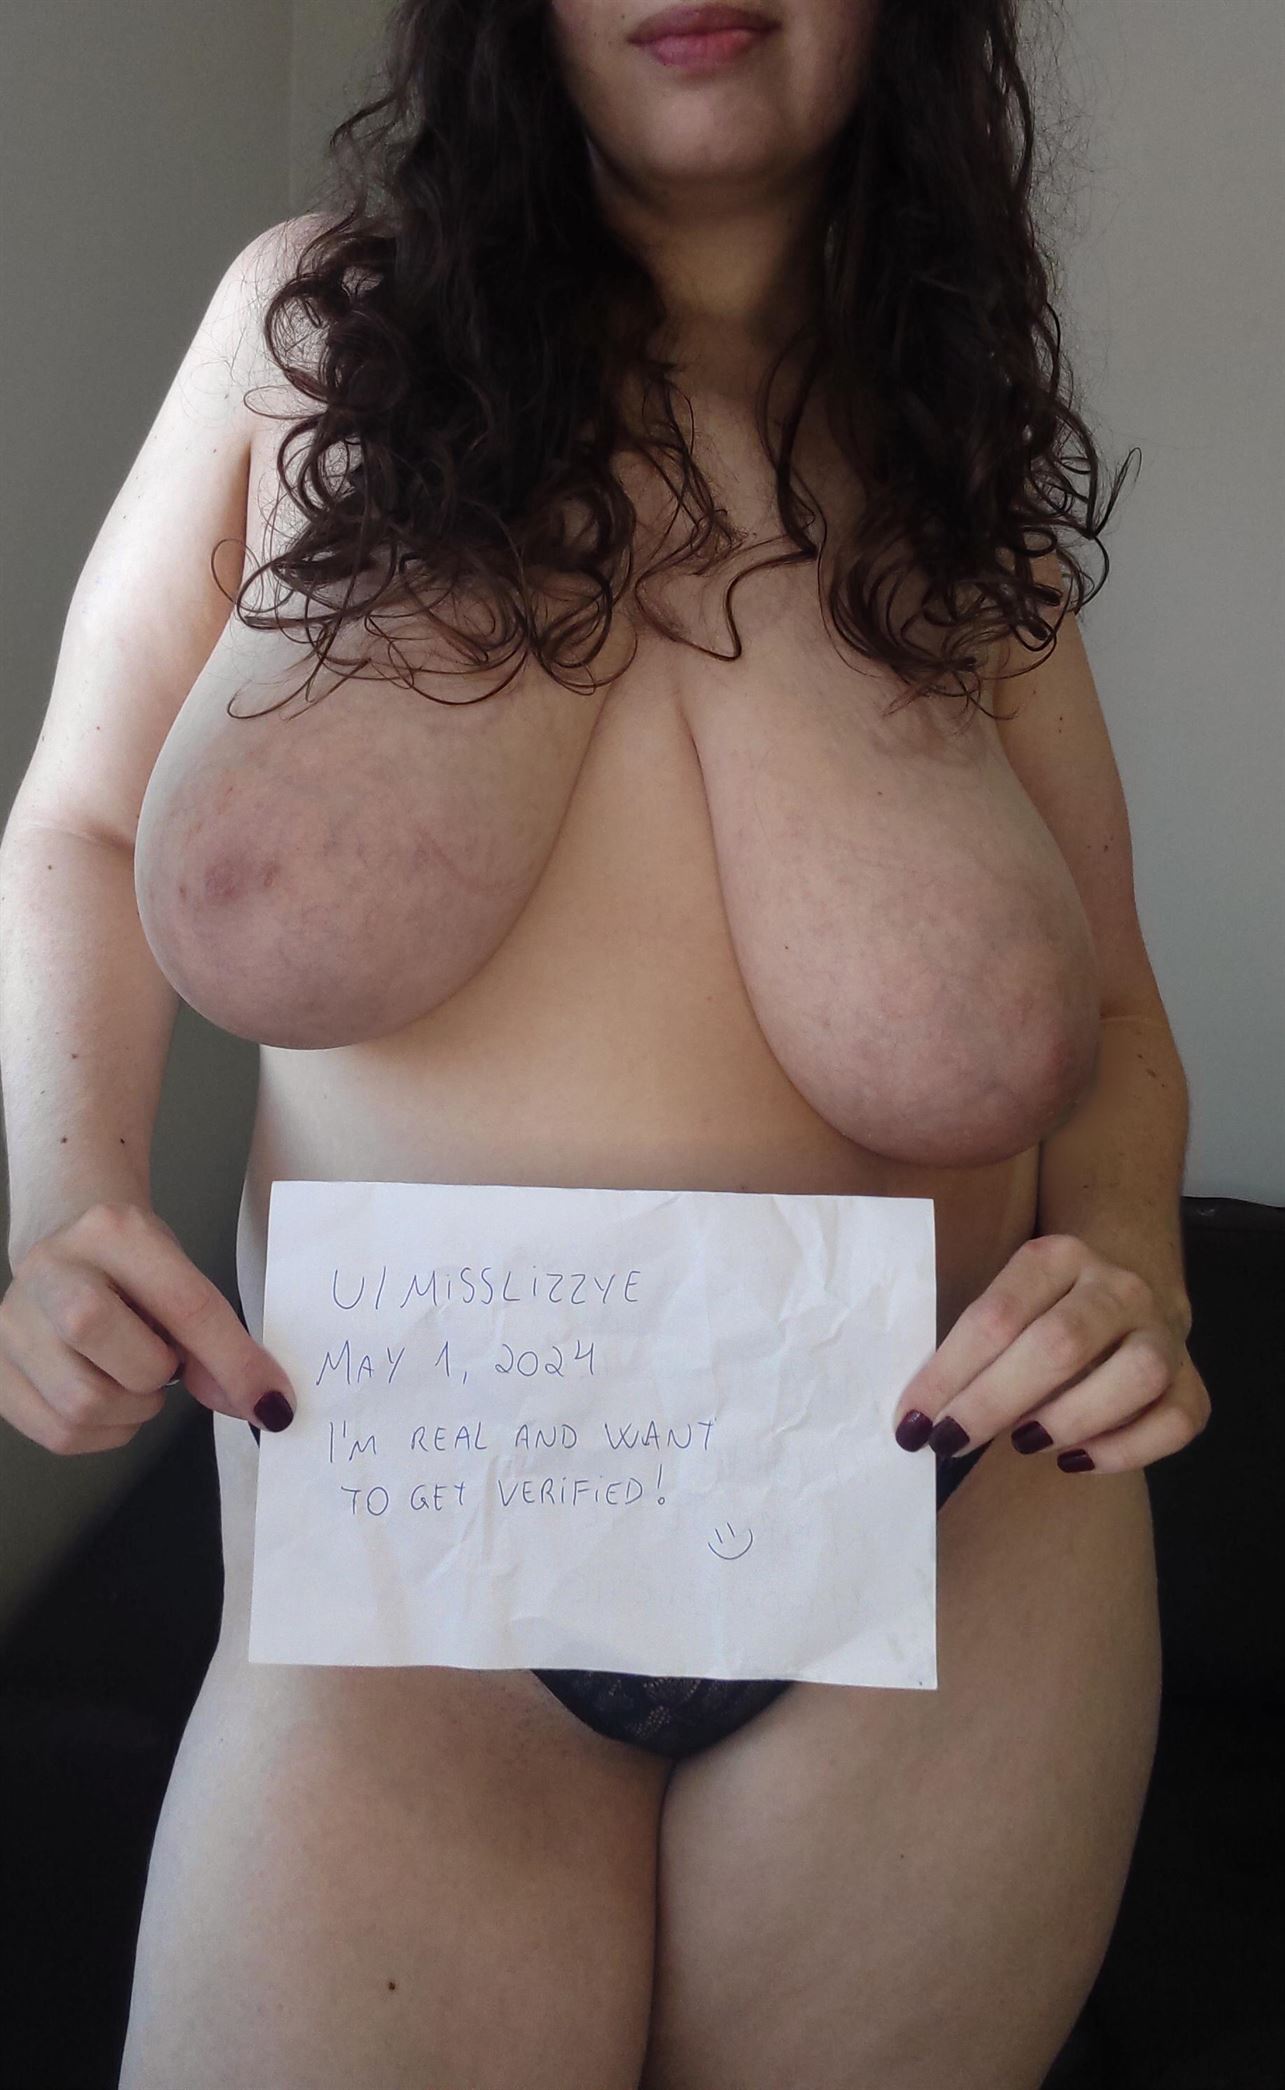 U/MiSSLiZZYE
MAY 1, 2024
I'M REAL AND WANT
TO GET VERiFiED!